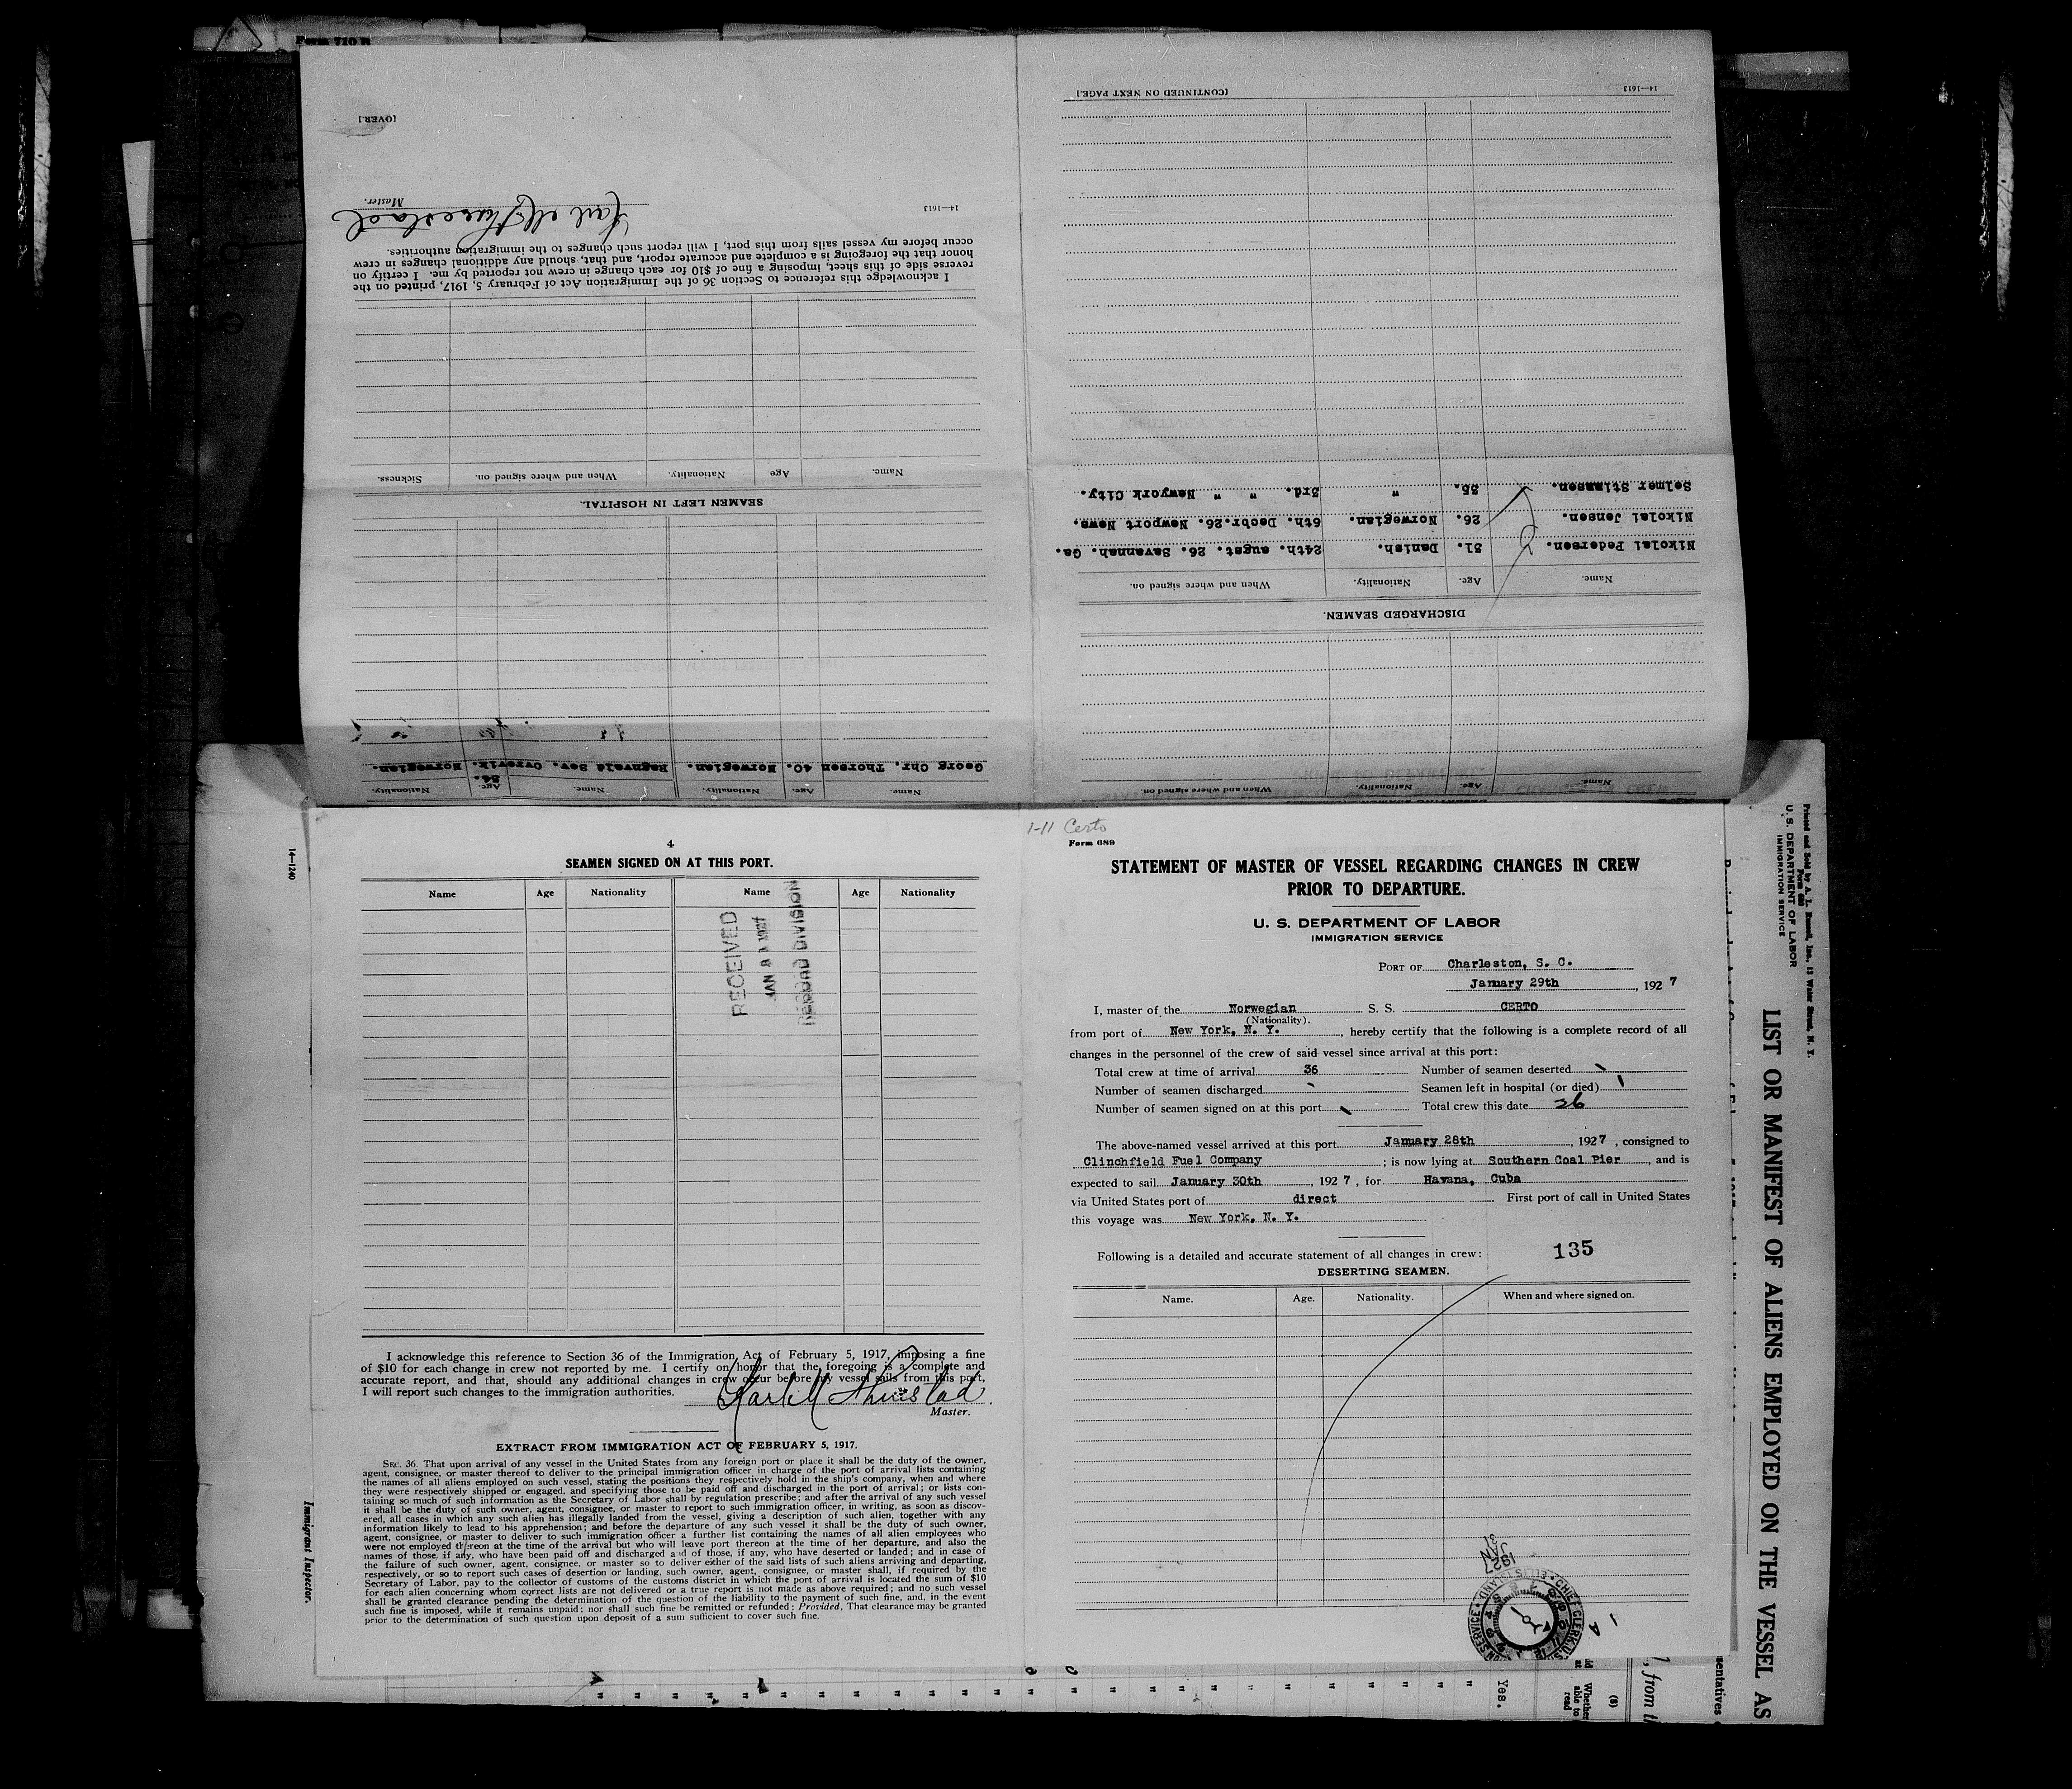 Form 710 B
[OVER.]
Master.
14—1613
I acknowledge this reference to Section 36 of the Immigration Act of February 5, 1917, printed on the
reverse side of this sheet, imposing a fine of $10 for each change in crew not reported by me. I certify on
honor that the foregoing is a complete and accurate report, and that, should any additional changes in crew
occur before my vessel sails from this port, I will report such changes to the immigration authorities.
SEAMEN LEFT IN HOSPITAL.
Name. Age Nationality. When and where signed on. Sickness.
Name. Age. Nationality. Name. Age. Nationality.
Georg Chr. Thorsen 40. Norwegian. Ragnvald Sev. Ovrevik. 36. Norwegian.
14—1613 [CONTINUED ON NEXT PAGE.]
DISCHARGED SEAMEN.
Name. Age. Nationality. When and where signed on.
Nikolai Pedersen. 31. Danish. 24th. augst. 26. Savannah. Ga.
Nikolai Jensen. 26. Norwegian. 6th. Decbr.26. Newport News.
Selmer Stimsen. 35. " 3rd. " " Newyork City.
Name. Age. Nationality. When and where signed on.
4
SEAMEN SIGNED ON AT THIS PORT.
Name Age Nationality Name Age Nationality
RECEIVED
JAN 31 1927
RECORD DIVISION
I acknowledge this reference to Section 36 of the Immigration Act of February 5, 1917, imposing a fine
of $10 for each change in crew not reported by me. I certify on honor that the foregoing is a complete and
accurate report, and that, should any additional changes in crew occur before my vessel sails from this port,
I will report such changes to the immigration authorities.
Master.
EXTRACT FROM IMMIGRATION ACT OF FEBRUARY 5, 1917.
SEC. 36. That upon arrival of any vessel in the United States from any foreign port or place it shall be the duty of the owner,
agent, consignee, or master thereof to deliver to the principal immigration officer in charge of the port of arrival lists containing
the names of all aliens employed on such vessel, stating the positions they respectively hold in the ship's company, when and where
they were respectively shipped or engaged, and specifying those to be paid off and discharged in the port of arrival; or lists con-
taining so much of such information as the Secretary of Labor shall by regulation prescribe; and after the arrival of any such vessel
it shall be the duty of such owner, agent, consignee, or master to report to such immigration officer, in writing, as soon as discov-
ered, all cases in which any such alien has illegally landed from the vessel, giving a description of such alien, together with any
information likely to lead to his apprehension; and before the departure of any such vessel it shall be the duty of such owner,
agent, consignee, or master to deliver to such immigration officer a further list containing the names of all alien employees who
were not employed thereon at the time of the arrival but who will leave port thereon at the time of her departure, and also the
names of those, if any, who have been paid off and discharged and of those, if any, who have deserted or landed; and in case of
the failure of such owner, agent, consignee, or master so to deliver either of the said lists of such aliens arriving and departing,
respectively, or so to report such cases of desertion or landing, such owner, agent, consignee, or master shall, if required by the
Secretary of Labor, pay to the collector of customs of the customs district in which the port of arrival is located the sum of $10
for each alien concerning whom correct lists are not delivered or a true report is not made as above required; and no such vessel
shall be granted clearance pending the determination of the question of the liability to the payment of such fine, and, in the event
such fine is imposed, while it remains unpaid; nor shall such fine be remitted or refunded: Provided, That clearance may be granted
prior to the determination of such question upon deposit of a sum sufficient to cover such fine.
1-11 Certo
Form 689
STATEMENT OF MASTER OF VESSEL REGARDING CHANGES IN CREW
PRIOR TO DEPARTURE.
U. S. DEPARTMENT OF LABOR
IMMIGRATION SERVICE
PORT OF Charleston, S. C.
January 29th, 1927
I, master of the Norwegian S. S. CERTO
(Nationality).
from port of New York, N. Y., hereby certify that the following is a complete record of all
changes in the personnel of the crew of said vessel since arrival at this port:
Total crew at time of arrival 36 Number of seamen deserted
Number of seamen discharged Seamen left in hospital (or died)
Number of seamen signed on at this port Total crew this date 26
The above-named vessel arrived at this port January 28th, 1927, consigned to
Clinchfield Fuel Company; is now lying at Southern Coal Pier, and is
expected to sail January 30th, 1927, for Havana, Cuba
via United States port of direct First port of call in United States
this voyage was New York, N. Y.
Following is a detailed and accurate statement of all changes in crew: 135
DESERTING SEAMEN.
Name. Age. Nationality. When and where signed on.
1927
JAN
CHIEF CLERK U.S.
ELLIS ISLAND
14—1240
Immigrant Inspector.
Printed and Sold by A. L. Russell, Inc., 12 Water Street, N. Y.
Form 680
U. S. DEPARTMENT OF LABOR
IMMIGRATION SERVICE
LIST OR MANIFEST OF ALIENS EMPLOYED ON THE VESSEL AS
sentatives
, from th
(8)
Whether
able to
read
Yes.